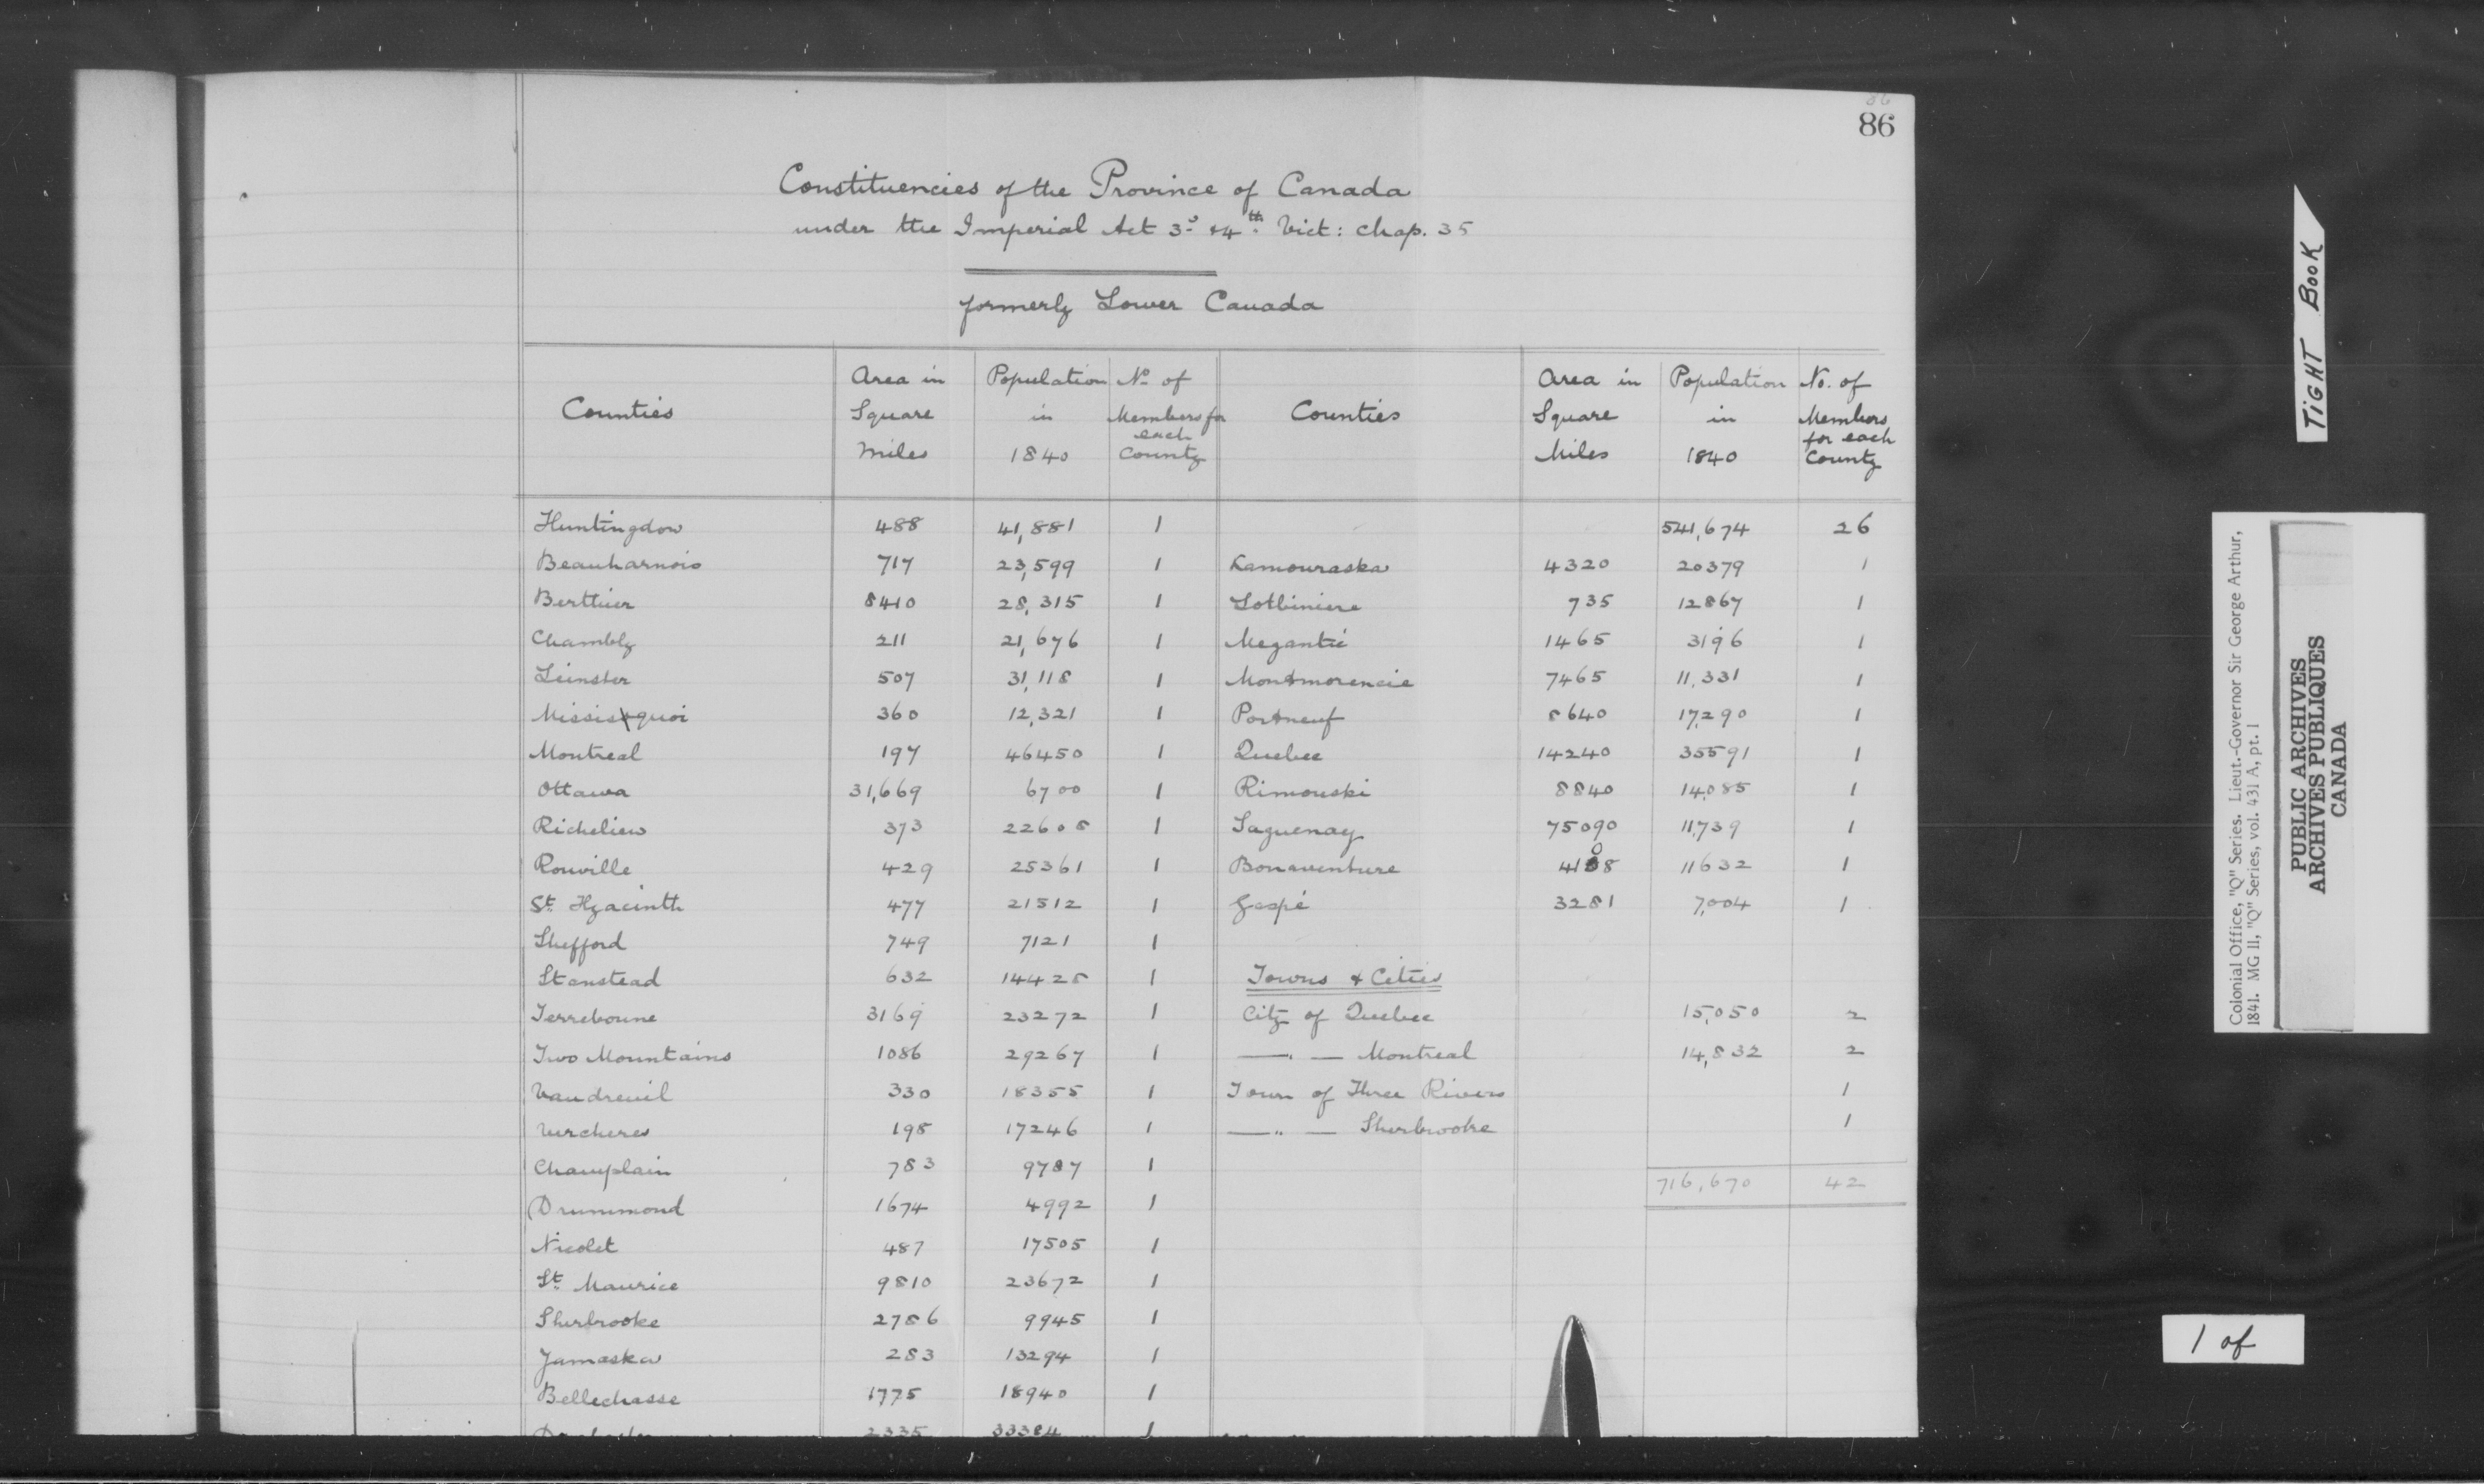 86
86
Constituencies of the Province of Canada
under the Imperial Act 3d & 4th Vict: chap. 35
formerly Lower Canada
Counties | Area in Square Miles | Population in 1840 | No of Members for each County | Counties | Area in Square Miles | Population in 1840 | No. of Members for each County
Huntingdon 488 41,881 1 541,674 26
Beauharnois 717 23,599 1 Kamouraska 4320 20379 1
Berthier 8410 28,315 1 Lotbiniere 735 12867 1
Chambly 211 21,676 1 Megantic 1465 3196 1
Leinster 507 31,118 1 Montmorencie 7465 11,331 1
Missisquoi 360 12,321 1 Portneuf 8640 17,290 1
Montreal 197 46450 1 Quebec 14240 35591 1
Ottawa 31,669 6700 1 Rimouski 8840 14,085 1
Richelieu 373 22608 1 Saguenay 75090 11,739 1
Rouville 429 25361 1 Bonaventure 4108 11632 1
St. Hyacinth 477 21512 1 Gaspé 3281 7,004 1
Shefford 749 7121 1
Stanstead 632 14428 1 Towns & Cities
Terrebonne 3169 23272 1 City of Quebec 15,050 2
Two Mountains 1086 29267 1 — " — Montreal 14,832 2
Vaudreuil 330 18355 1 Town of Three Rivers 1
Vercheres 198 17246 1 — " — Sherbrooke 1
Champlain 783 9787 1
716,670 42
Drummond 1674 4992 1
Nicolet 487 17505 1
St. Maurice 9810 23672 1
Sherbrooke 2786 9945 1
Yamaska 283 13294 1
Bellechasse 1775 18940 1
2335 33384 1
TIGHT BOOK
Colonial Office, "Q" Series. Lieut.-Governor Sir George Arthur,
1841. MG 11, "Q" Series, vol. 431 A, pt. 1
PUBLIC ARCHIVES
ARCHIVES PUBLIQUES
CANADA
1 of